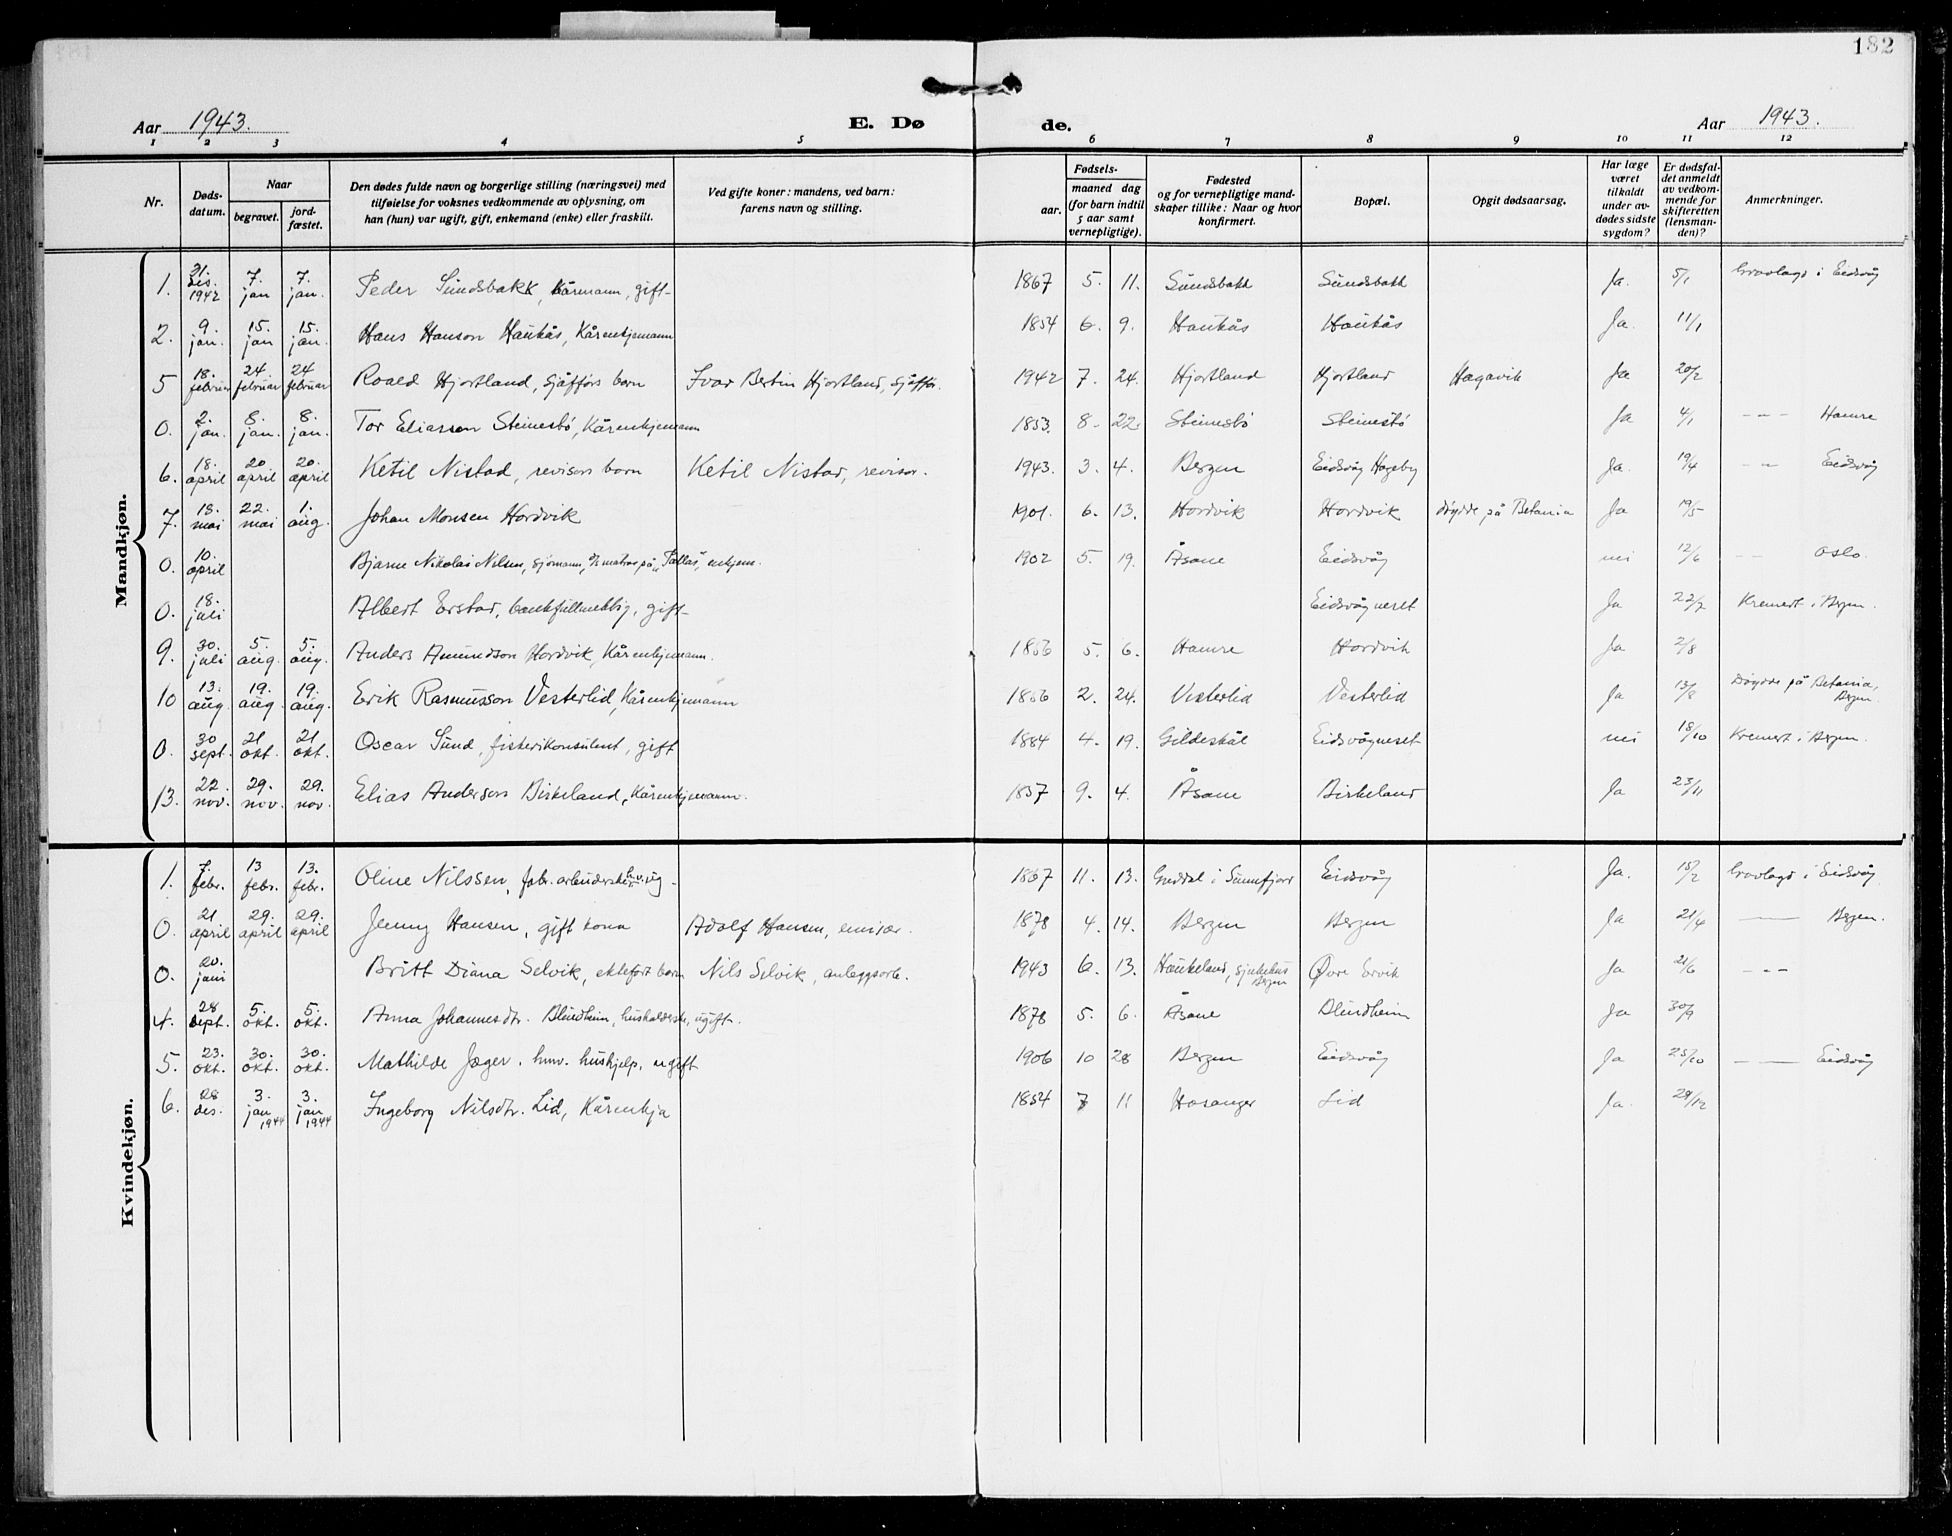 182
Aar 1943. E. Dø de. Aar 1943.
1 2 3 4 5 6 7 8 9 10 11 12
Nr. Døds-datum. Naar begravet. jord-fæstet. Den dødes fulde navn og borgerlige stilling (næringsvei) med tilføielse for voksnes vedkommende av oplysning, om han (hun) var ugift, gift, enkemand (enke) eller fraskilt. Ved gifte koner: mandens, ved barn: farens navn og stilling. Fødsels- aar. maaned dag (for barn indtil 5 aar samt vernepligtige). Fødested og for vernepligtige mand-skaper tillike: Naar og hvor konfirmert. Bopæl. Opgit dødsaarsag. Har læge været tilkaldt under av-dødes sidste sygdom? Er dødsfal-det anmeldt av vedkom-mende for skifteretten (lensman-den)? Anmerkninger.
Mandkjøn.
1. 31. des. 1942 7. jan 7. jan. Peder Sundsbakk, kårmann, gift 1867 5. 11. Sundsbakk Sundsbakk Ja. 5/1 Gravlagd i Eidsvåg
2. 9. jan. 15. jan 15. jan. Hans Hanson Haukås, Kårenkjemann 1854 6. 9. Haukås Haukås Ja. 11/1
5 18. februar 24. februar 24 februar Roald Hjortland, sjåførs barn Ivar Bertin Hjortland, sjåfør. 1942 7. 24. Hjortland Hjortland Hagavik Ja 20/2
0. 2. jan. 8. jan. 8. jan. Tor Eliassen Steinestø, Kårenkjemann 1853. 8. 22. Steinestø Steinestø Ja 4/1 – – – Hamre
6. 18. april 20 april 20. april Ketil Nistad, revisors barn Ketil Nistad, revisor. 1943. 3. 4. Bergen Eidsvåg Hageby Ja. 19/4 – – Eidsvåg
7. 18. mai 22. mai 1. aug. Johan Monsen Hordvik 1901. 6. 13. Hordvik Hordvik døydde på Betania Ja 19/5
0. 10. april Bjarne Nikolai Nilsen, sjømann, matros på "Pallas", enkjem. 1902 5. 19. Åsane Eidsvåg nei 12/6 – – Oslo.
0. 18. juli Albert Erstad, bankfullmektig, gift Eidsvågneset Ja 22/7 Kremert i Bergen.
9. 30. juli 5. aug. 5. aug. Anders Amundson Hordvik, Kårenkjemann. 1856 5. 6. Hamre Hordvik Ja 2/8
10 13. aug. 19. aug. 19. aug. Erik Rasmusson Vesterlid, Kårenkjemann 1856 2. 24. Vesterlid Vesterlid Ja 13/8 Døydde på Betania, Bergen.
0. 30 sept. 21 okt. 21 okt. Oscar Sund, fiskerikonsulent, gift 1884 4. 19. Gildeskål Eidsvågneset nei 18/10 Kremert i Bergen.
13. 22. nov. 29. nov. 29. nov. Elias Anderson Birkeland, Kårenkjemann. 1857 9. 4. Åsane Birkeland Ja 23/11
Kvindekjøn.
1. 7. febr. 13 febr. 13. febr. Oline Nilssen, fabr.arbeiderske, ug. 1867 11. 13. Guddal i Sunnfjord Eidsvåg Ja. 15/2 Gravlagd i Eidsvåg
0. 21 april 29. april 29. april Jenny Hansen, gift kona Adolf Hansen, emisær. 1878 4. 14. Bergen Bergen Ja 21/4 –– Bergen.
0. 20. juni Britt Diana Selvik, ektefødt barn Nils Selvik, anleggsarb. 1943 6. 13. Haukeland sjukehus Bergen Øvre Ervik Ja 21/6 – – –
4. 28 sept. 5. okt. 5. okt. Anna Johannesdtr. Blindheim, hushalderske, ugift. 1878 5. 6. Åsane Blindheim Ja 30/9
5. 23. okt. 30. okt. 30. okt. Mathilde Jæger, hmv. hushjelp, ugift 1906 10 28 Bergen Eidsvåg Ja 25/10 –– Eidsvåg
6. 28 des. 3. jan 1944 3. jan 1944 Ingeborg Nilsdtr. Lid, Kårenkja 1854 7 11 Hosanger Lid Ja. 29/12